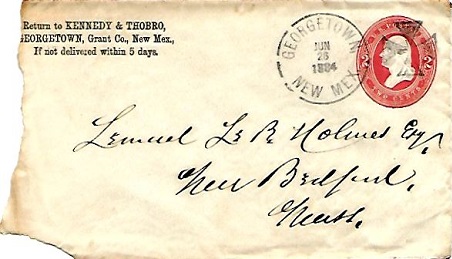 Return to KENNEDY & THOBRO,
GEORGETOWN, Grant Co., New Mex.,
If not delivered within 5 days.
GEORGETOWN
JUN
26
1884
NEW MEX.
2 2
Lemuel Le B. Holmes Esq.
New Bedford,
Mass.